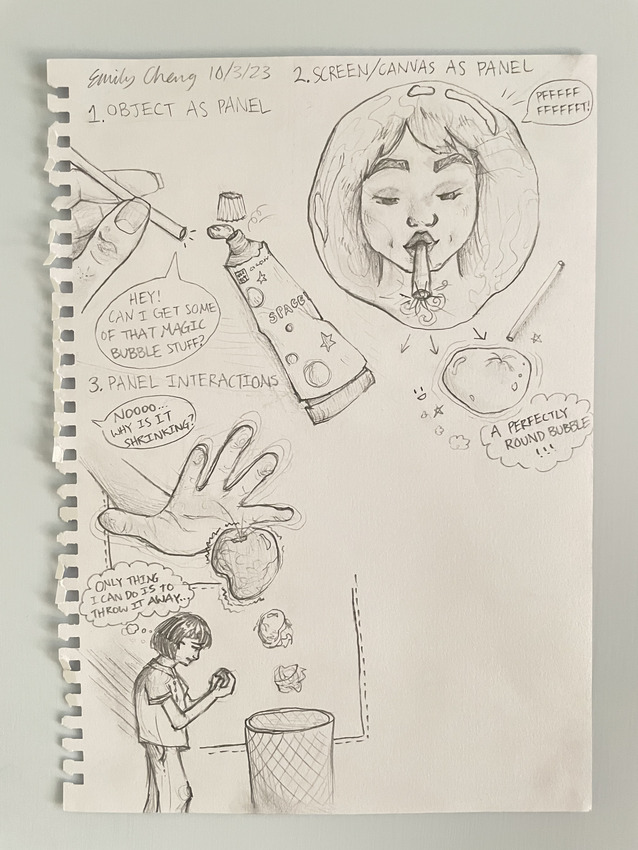 Emily Cheng 10/3/23
2. SCREEN/CANVAS AS PANEL
1. OBJECT AS PANEL
PFFFFF
FFFFFFT!
HEY!
CAN I GET SOME
OF THAT MAGIC
BUBBLE STUFF?
SPACE
A PERFECTLY
ROUND BUBBLE
!!!
3. PANEL INTERACTIONS
NOOOO...
WHY IS IT
SHRINKING?
ONLY THING
I CAN DO IS TO
THROW IT AWAY...